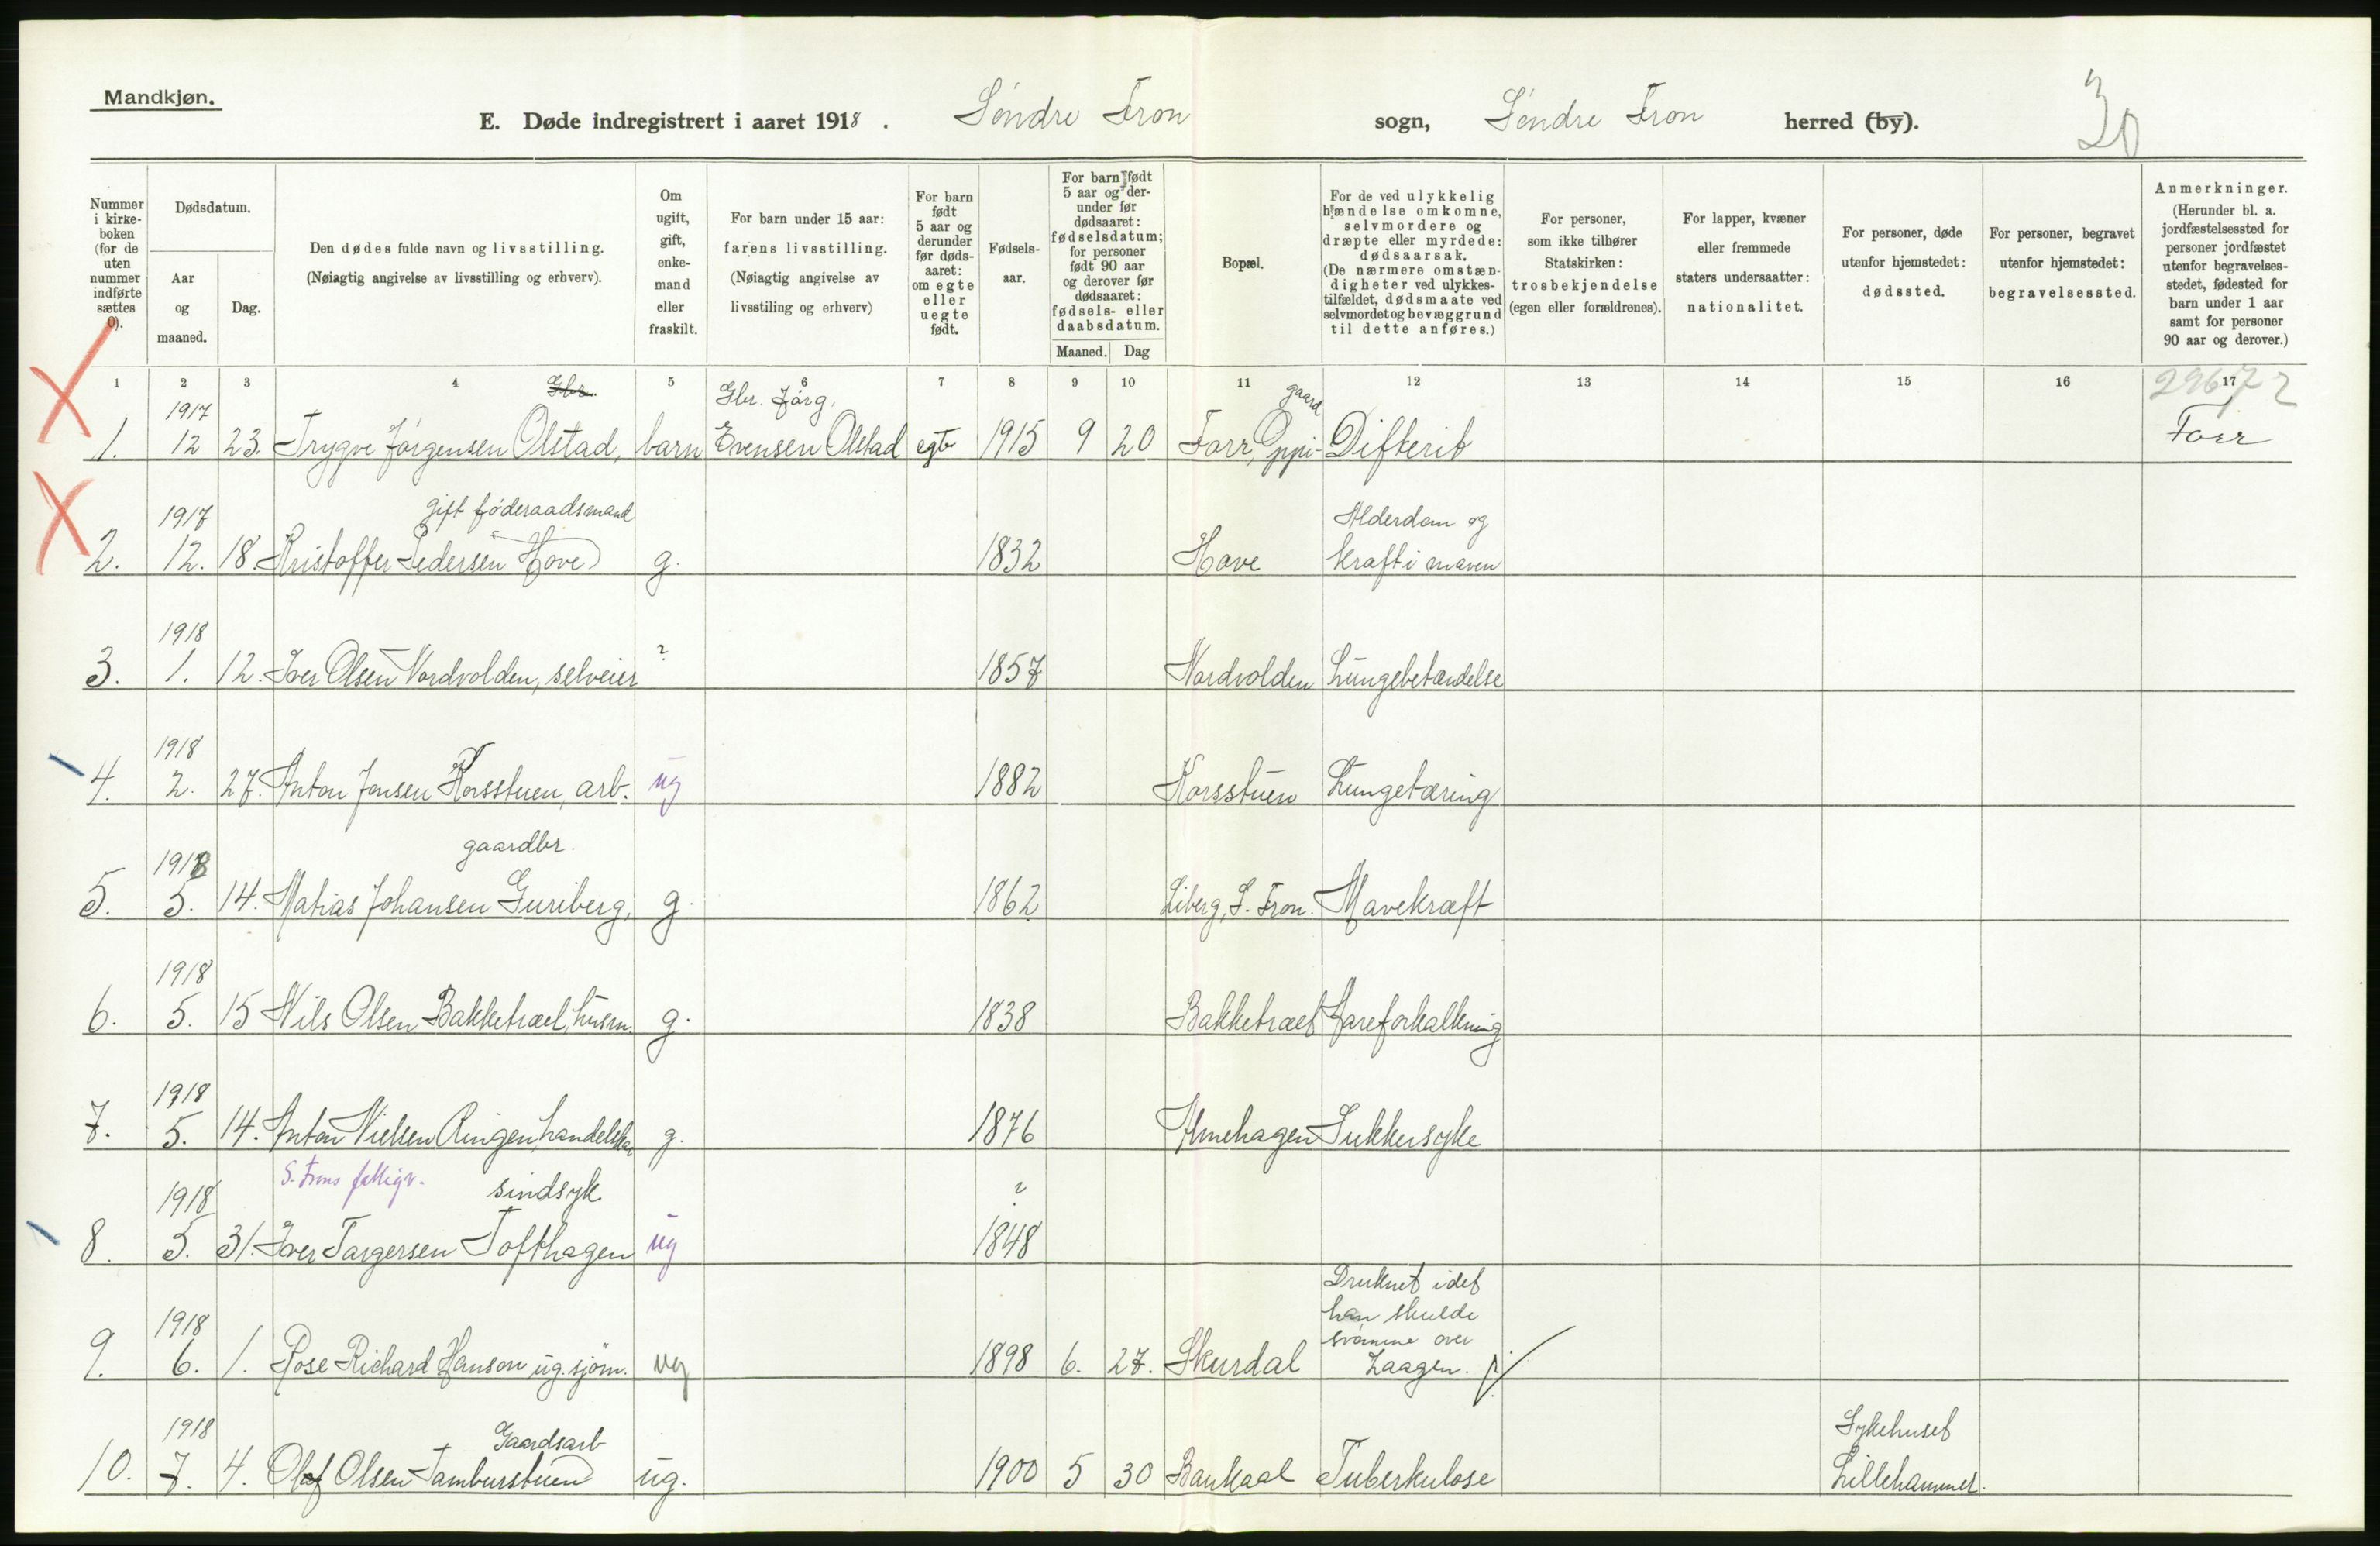 Mandkjøn.
E. Døde indregistrert i aaret 1918. Søndre Fron sogn, Søndre Fron herred (by).
30
Nummer i kirkeboken (for de uten nummer indførte sættes 0).
Dødsdatum.
Aar og maaned.
Dag.
Den dødes fulde navn og livsstilling.
(Nøiagtig angivelse av livsstilling og erhverv).
Om ugift, gift, enkemand eller fraskilt.
For barn under 15 aar: farens livsstilling.
(Nøiagtig angivelse av livsstiling og erhverv)
For barn født 5 aar og derunder før dødsaaret: om egte eller uegte født.
Fødselsaar.
For barn født 5 aar og derunder før dødsaaret: fødselsdatum; for personer født 90 aar og derover før dødsaaret: fødsels- eller daabsdatum.
Maaned. Dag
Bopæl.
For de ved ulykkelig hændelse omkomne, selvmordere og dræpte eller myrdede: dødsaarsak.
(De nærmere omstændigheter ved ulykkestilfældet, dødsmaate ved selvmordet og bevæggrund til dette anføres.)
For personer, som ikke tilhører Statskirken: trosbekjendelse (egen eller forældrenes).
For lapper, kvæner eller fremmede staters undersaatter: nationalitet.
For personer, døde utenfor hjemstedet: dødssted.
For personer, begravet utenfor hjemstedet: begravelsessted.
Anmerkninger.
(Herunder bl. a. jordfæstelsessted for personer jordfæstet utenfor begravelsesstedet, fødested for barn under 1 aar samt for personer 90 aar og derover.)
1 2 3 4 5 6 7 8 9 10 11 12 13 14 15 16 17
Gbr.
1917 Gbr. Jørg. gaard
1. 12 23. Trygve Jørgensen Olstad, barn Evensen Olstad egte 1915 9 20 Forr, Oppi- Difterit Forr
1917 gift føderaadsmand Alderdom og
2. 12. 18. Kristoffer Pedersen Hove g. 1832 Hove kræft i maven
1918
3. 1. 12. Iver Olsen Nordvolden, selveier ? 1857 Nordvolden Lungebetændelse
1918
4. 2. 27. Anton Jonsen Korsstuen, arb. ug 1882 Korsstuen Lungetæring
1918 gaardbr.
5. 5. 14. Matias Johansen Guriberg, g. 1862 Liberg, S. Fron. Mavekræft
1918
6. 5. 15 Nils Olsen Bakketraet, husm. g. 1838 Bakketraet Aareforkalkning
1918
7. 5. 14. Anton Nielsen Ringen, g. 1876 Almehagen Sukkersyke
S. Frons fattigv. sindsyk
1918 ?
8. 5. 31. Iver Torgersen Tofthagen ug 1848
Druknet idet
han skulde
1918 svømme over
9. 6. 1. Rose Richard Hanson ug. sjøm. ug 1898 6. 27. Skurdal Laagen.
1918 Gaardsarb Sykehuset
10. 7. 4. Olaf Olsen Tamburstuen ug. 1900 5 30 Baukaal Tuberkulose Lillehammer.